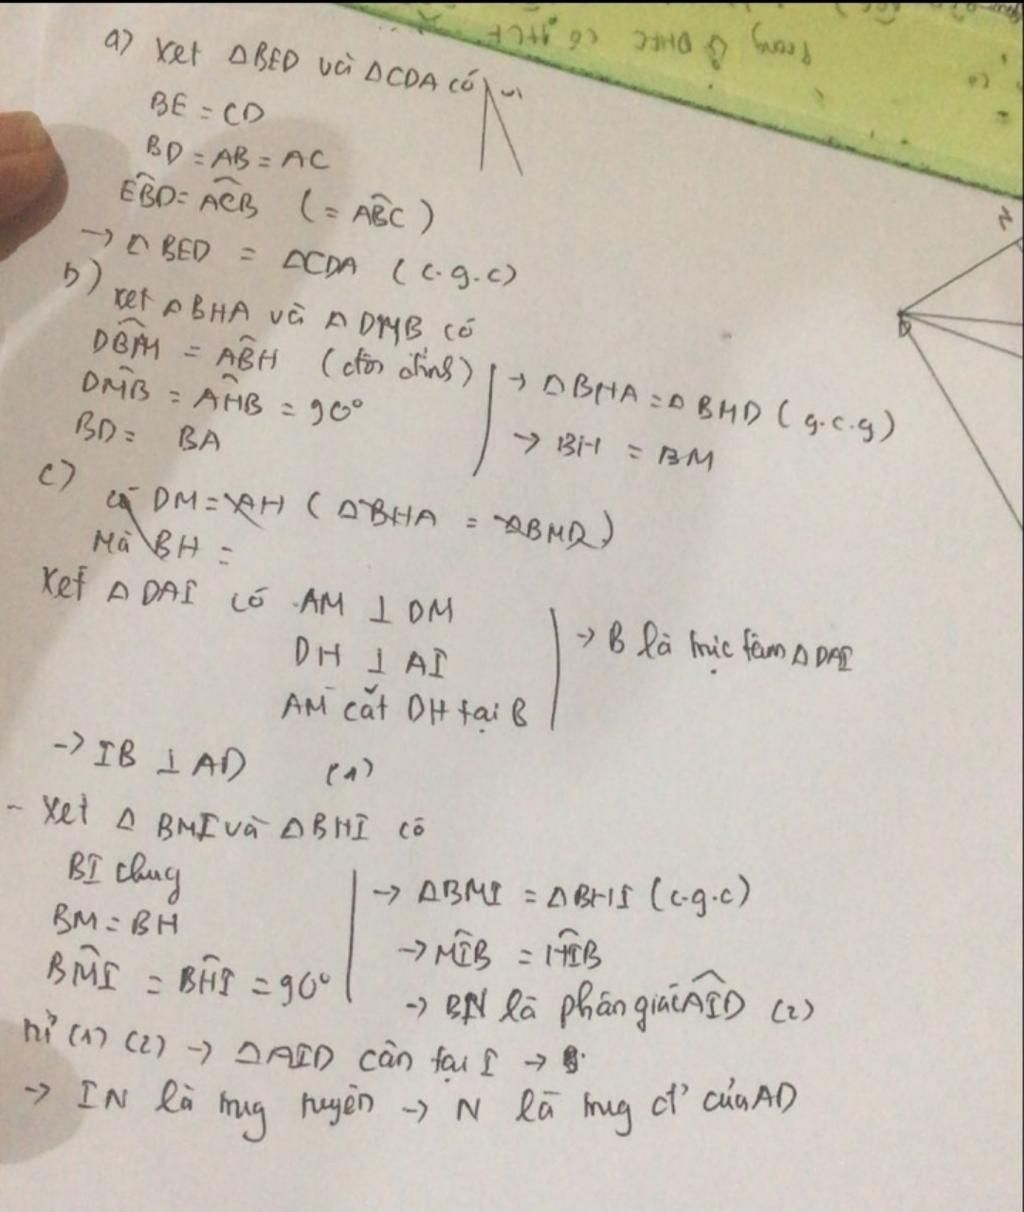 a) xét ΔBED và ΔCDA có
BE = CD
BD = AB = AC
EBD̂ = AĈB (= AB̂C)
→ Δ BED = ΔCDA (c.g.c)
b) xét ΔBHA và Δ DMB có
DB̂M = AB̂H (đối đỉnh)
DM̂B = AĤB = 90°
BD = BA
→ ΔBHA = Δ BMD (g.c.g)
→ BH = BM
c) có DM = AH (ΔBHA = ΔBMD)
Mà BH =
Xét Δ DAI có AM ⊥ DM
DH ⊥ AI
AM cắt DH tại B
→ B là trực tâm Δ DAI
→ IB ⊥ AD (1)
- Xét Δ BMI và ΔBHI có
BI chug
BM = BH
BM̂I = BĤI = 90°
→ ΔBMI = ΔBHI (c.g.c)
→ MÎB = HÎB
→ BN là phân giác AÎD (2)
từ (1) (2) → ΔAID cân tại I →
→ IN là trug tuyến → N là trug đ' của AD
N
D